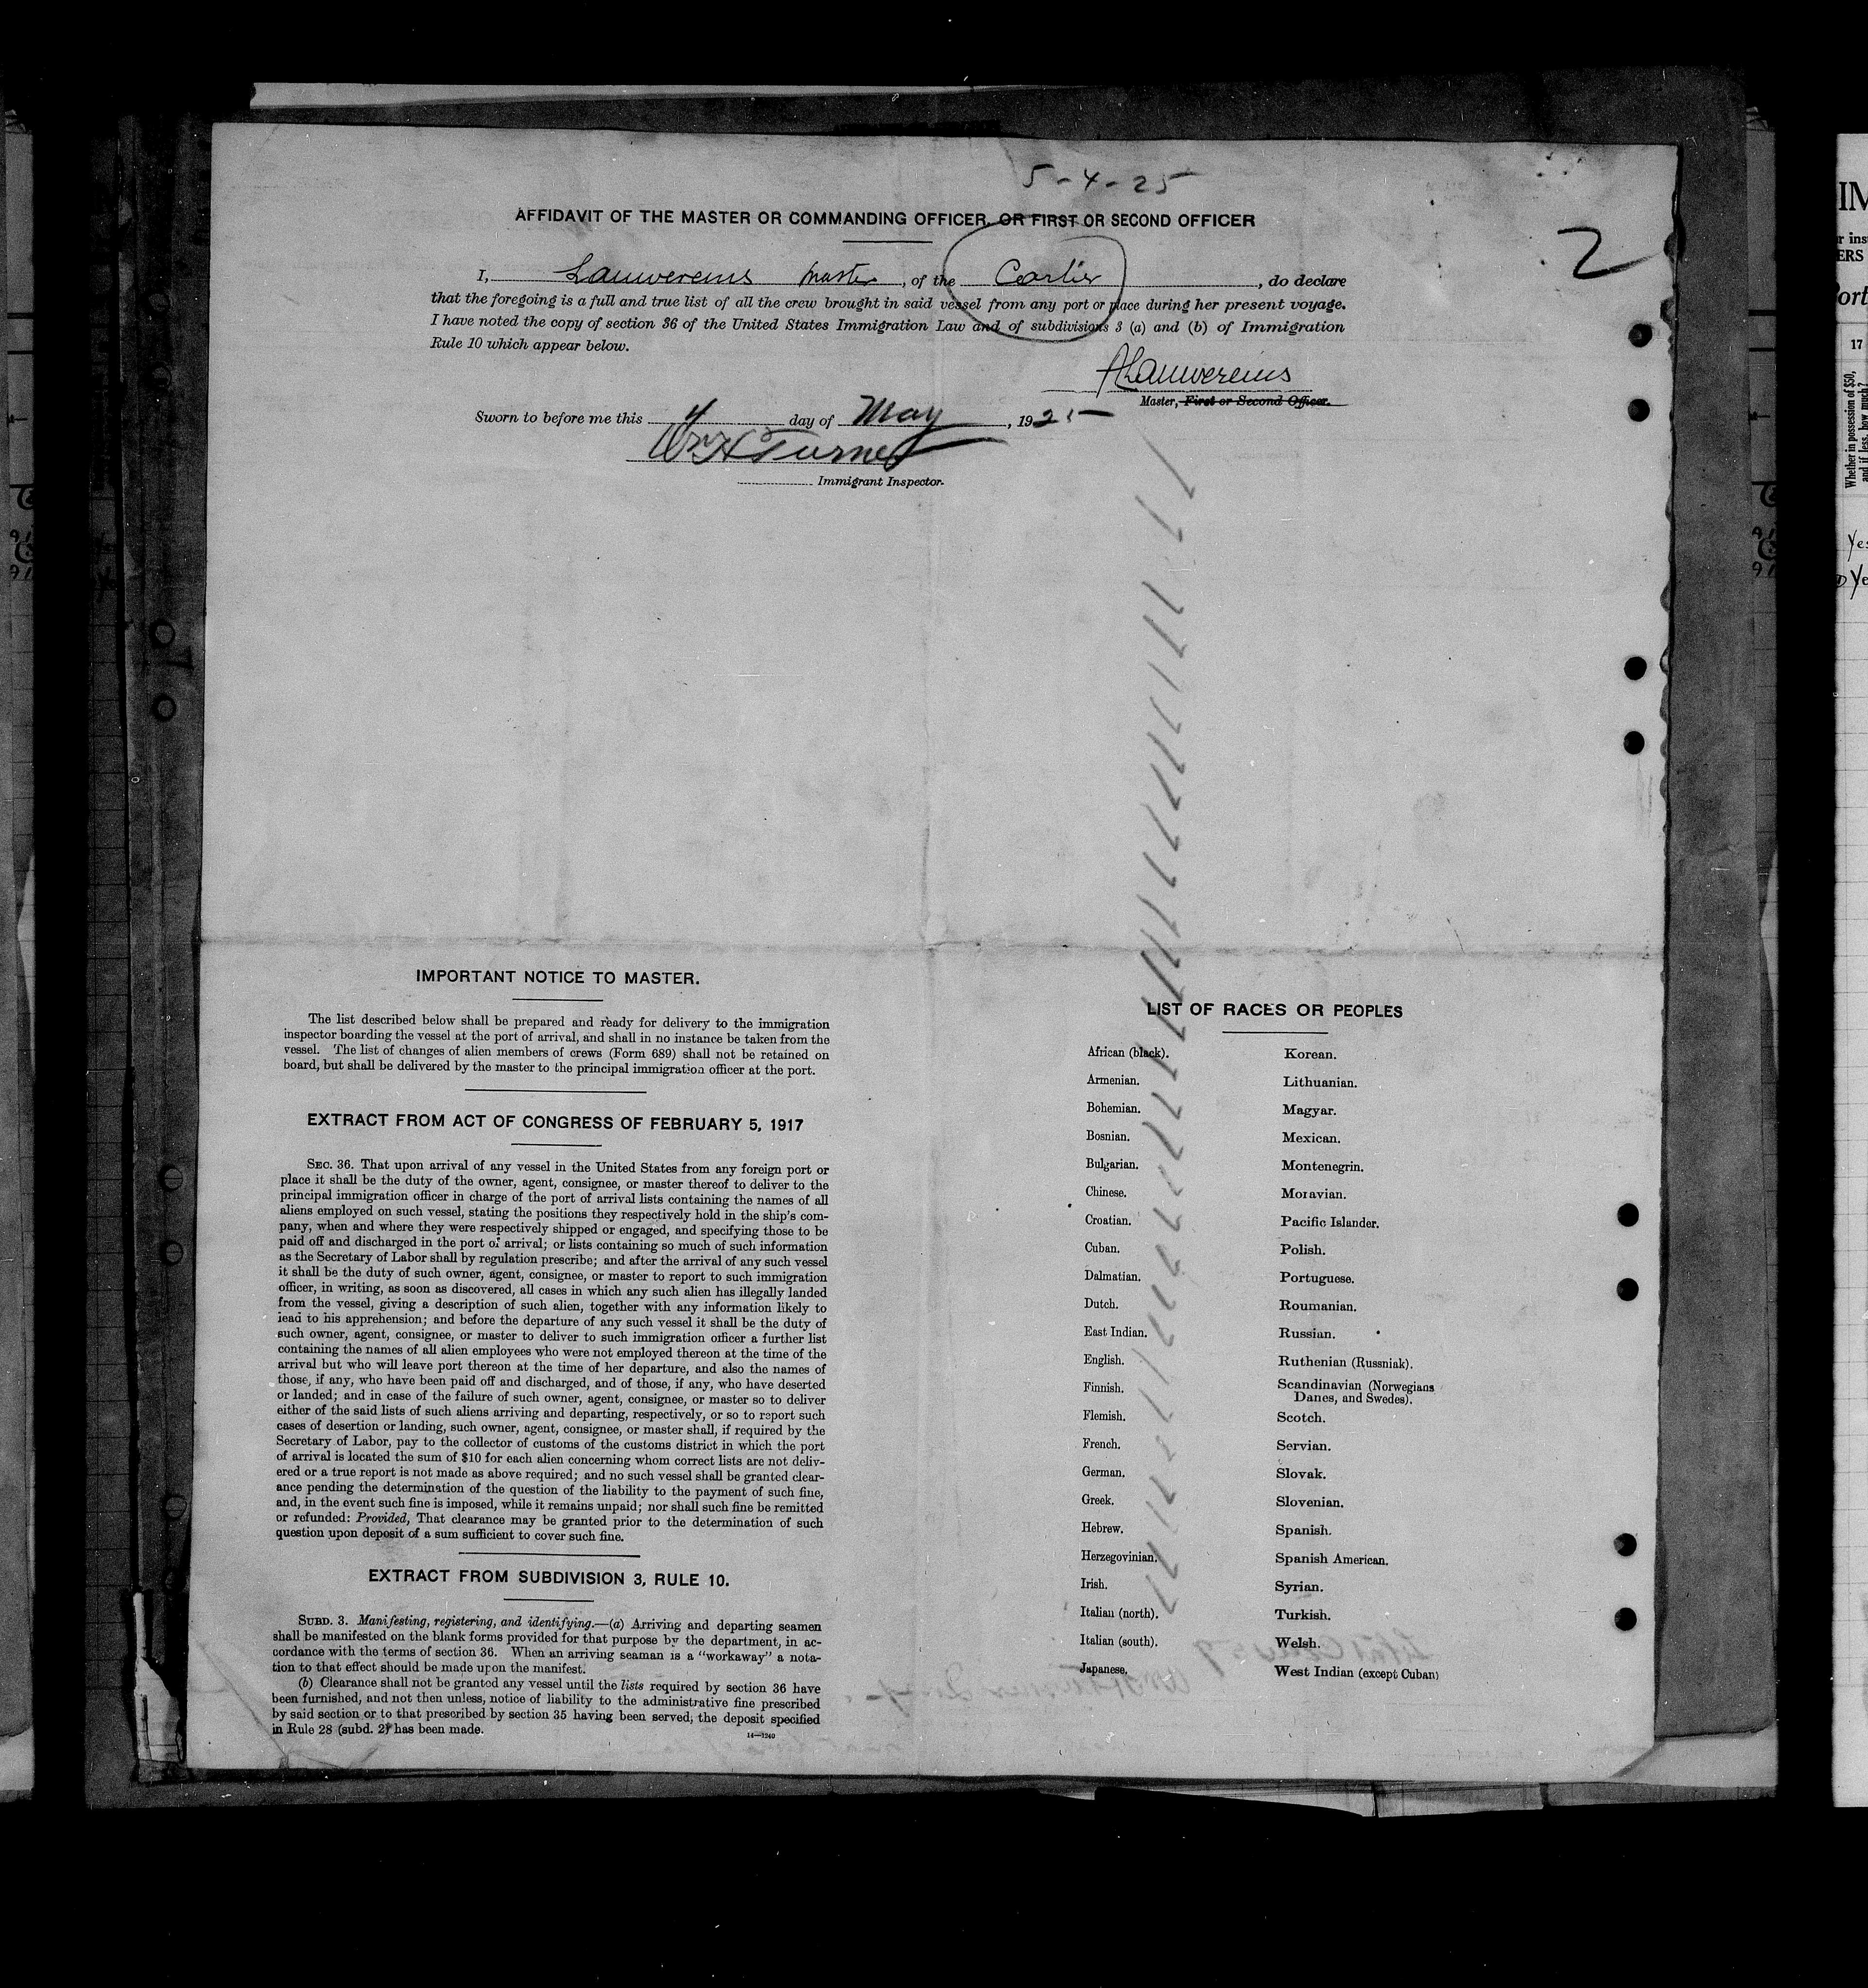 5-4-25
AFFIDAVIT OF THE MASTER OR COMMANDING OFFICER, OR FIRST OR SECOND OFFICER
2
I, Lauwereins Master, of the Carlier, do declare
that the foregoing is a full and true list of all the crew brought in said vessel from any port or place during her present voyage.
I have noted the copy of section 36 of the United States Immigration Law and of subdivisions 3 (a) and (b) of Immigration
Rule 10 which appear below.
ALauwereins
Master, First or Second Officer.
Sworn to before me this 4 day of May, 1925
Wm H Turner
Immigrant Inspector.
IMPORTANT NOTICE TO MASTER.
The list described below shall be prepared and ready for delivery to the immigration
inspector boarding the vessel at the port of arrival, and shall in no instance be taken from the
vessel. The list of changes of alien members of crews (Form 689) shall not be retained on
board, but shall be delivered by the master to the principal immigration officer at the port.
EXTRACT FROM ACT OF CONGRESS OF FEBRUARY 5, 1917
SEC. 36. That upon arrival of any vessel in the United States from any foreign port or
place it shall be the duty of the owner, agent, consignee, or master thereof to deliver to the
principal immigration officer in charge of the port of arrival lists containing the names of all
aliens employed on such vessel, stating the positions they respectively hold in the ship's com-
pany, when and where they were respectively shipped or engaged, and specifying those to be
paid off and discharged in the port of arrival; or lists containing so much of such information
as the Secretary of Labor shall by regulation prescribe; and after the arrival of any such vessel
it shall be the duty of such owner, agent, consignee, or master to report to such immigration
officer, in writing, as soon as discovered, all cases in which any such alien has illegally landed
from the vessel, giving a description of such alien, together with any information likely to
lead to his apprehension; and before the departure of any such vessel it shall be the duty of
such owner, agent, consignee, or master to deliver to such immigration officer a further list
containing the names of all alien employees who were not employed thereon at the time of the
arrival but who will leave port thereon at the time of her departure, and also the names of
those, if any, who have been paid off and discharged, and of those, if any, who have deserted
or landed; and in case of the failure of such owner, agent, consignee, or master so to deliver
either of the said lists of such aliens arriving and departing, respectively, or so to report such
cases of desertion or landing, such owner, agent, consignee, or master shall, if required by the
Secretary of Labor, pay to the collector of customs of the customs district in which the port
of arrival is located the sum of $10 for each alien concerning whom correct lists are not deliv-
ered or a true report is not made as above required; and no such vessel shall be granted clear-
ance pending the determination of the question of the liability to the payment of such fine,
and, in the event such fine is imposed, while it remains unpaid; nor shall such fine be remitted
or refunded: Provided, That clearance may be granted prior to the determination of such
question upon deposit of a sum sufficient to cover such fine.
EXTRACT FROM SUBDIVISION 3, RULE 10.
SUBD. 3. Manifesting, registering, and identifying.—(a) Arriving and departing seamen
shall be manifested on the blank forms provided for that purpose by the department, in ac-
cordance with the terms of section 36. When an arriving seaman is a "workaway" a nota-
tion to that effect should be made upon the manifest.
(b) Clearance shall not be granted any vessel until the lists required by section 36 have
been furnished, and not then unless, notice of liability to the administrative fine prescribed
by said section or to that prescribed by section 35 having been served, the deposit specified
in Rule 28 (subd. 2) has been made.
14—1240
LIST OF RACES OR PEOPLES
African (black).
Armenian.
Bohemian.
Bosnian.
Bulgarian.
Chinese.
Croatian.
Cuban.
Dalmatian.
Dutch.
East Indian.
English.
Finnish.
Flemish.
French.
German.
Greek.
Hebrew.
Herzegovinian.
Irish.
Italian (north).
Italian (south).
Japanese.
Korean.
Lithuanian.
Magyar.
Mexican.
Montenegrin.
Moravian.
Pacific Islander.
Polish.
Portuguese.
Roumanian.
Russian.
Ruthenian (Russniak).
Scandinavian (Norwegians
Danes, and Swedes).
Scotch.
Servian.
Slovak.
Slovenian.
Spanish.
Spanish American.
Syrian.
Turkish.
Welsh.
West Indian (except Cuban)
17
Whether in possession of $50,
and if less, how much?